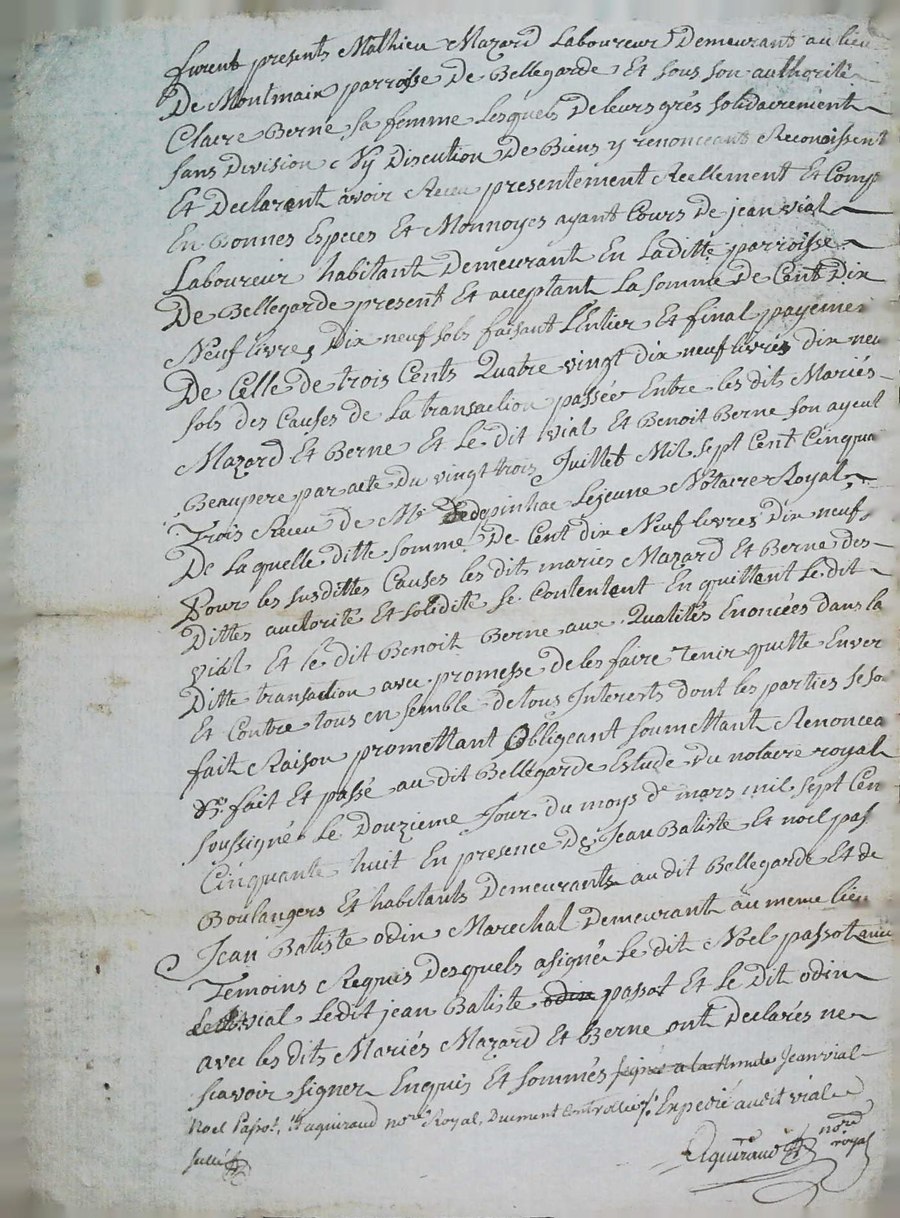 furent presents Mathieu Mazard Laboureur Demeurant au lieu
De Montmain parroisse De Bellegarde Et sous son authorité
Claire Berne sa femme Lesquels De leurs grés solidairement
sans Division Ny Discution De Biens y renonceant Reconoissent
Et Declarant avoir Receu presentement Reellement Et Comp
En Bonnes Especes Et Monnoyes ayant Cours De jean vial
Laboureur habitant Demeurant En Laditte parroisse
De Bellegarde present Et aceptant La somme De Cent Dix
Neuf livres Dix neuf sols faisant L'Entier Et final payemen
De Celle de trois Cents Quatre vingt dix neuf livres dix neu
sols des Causes de La transaction passée Entre les dits Mariés
Mazard Et Berne Et Le dit vial Et Benoit Berne son ayeul
Beaupere par acte Du vingt trois Juillet Mil sept Cent Cinqua
Trois Receu de Me Lejeune Notaire Royal
De Laquelle ditte somme De Cent dix Neuf livres Dix neuf s
Pour les susdittes Causes les dits mariés Mazard Et Berne des
Dittes auctorité Et solidité se Contentent En quittant Le dit
vial Et le dit Benoit Berne aux Qualités Enoncées dans la
Ditte transaction avec promesse de les faire Tenir quitte Enver
Et Contre tous en semble de tous Interests dont les parties se so
fait Raison promettant Obligeant soumettant Renoncea
&c. fait Et passé au dit Bellegarde Estude Du notaire royal
soussigné Le Douzieme Jour du moys de mars mil sept Cen
Cinquante huit En presence De Jean Batiste Et noel pas
Boulangers Et habitants Demeurants au dit Bellegarde Et de
Jean Batiste odin Marechal Demeurant au meme lieu
Temoins Requis Desquels a signé Le dit Noel passot avec
vial Le dit jean Batiste odin passot Et Le Dit odin
avec les dits Mariés Mazard Et Berne ont Declarés ne
scavoir signer Enquis Et sommés signé a la Minute Jean vial
Noel Passot, Et aguiraud nore Royal, Duement Controllée Expedié audit vial
Aguiraud nore
royal